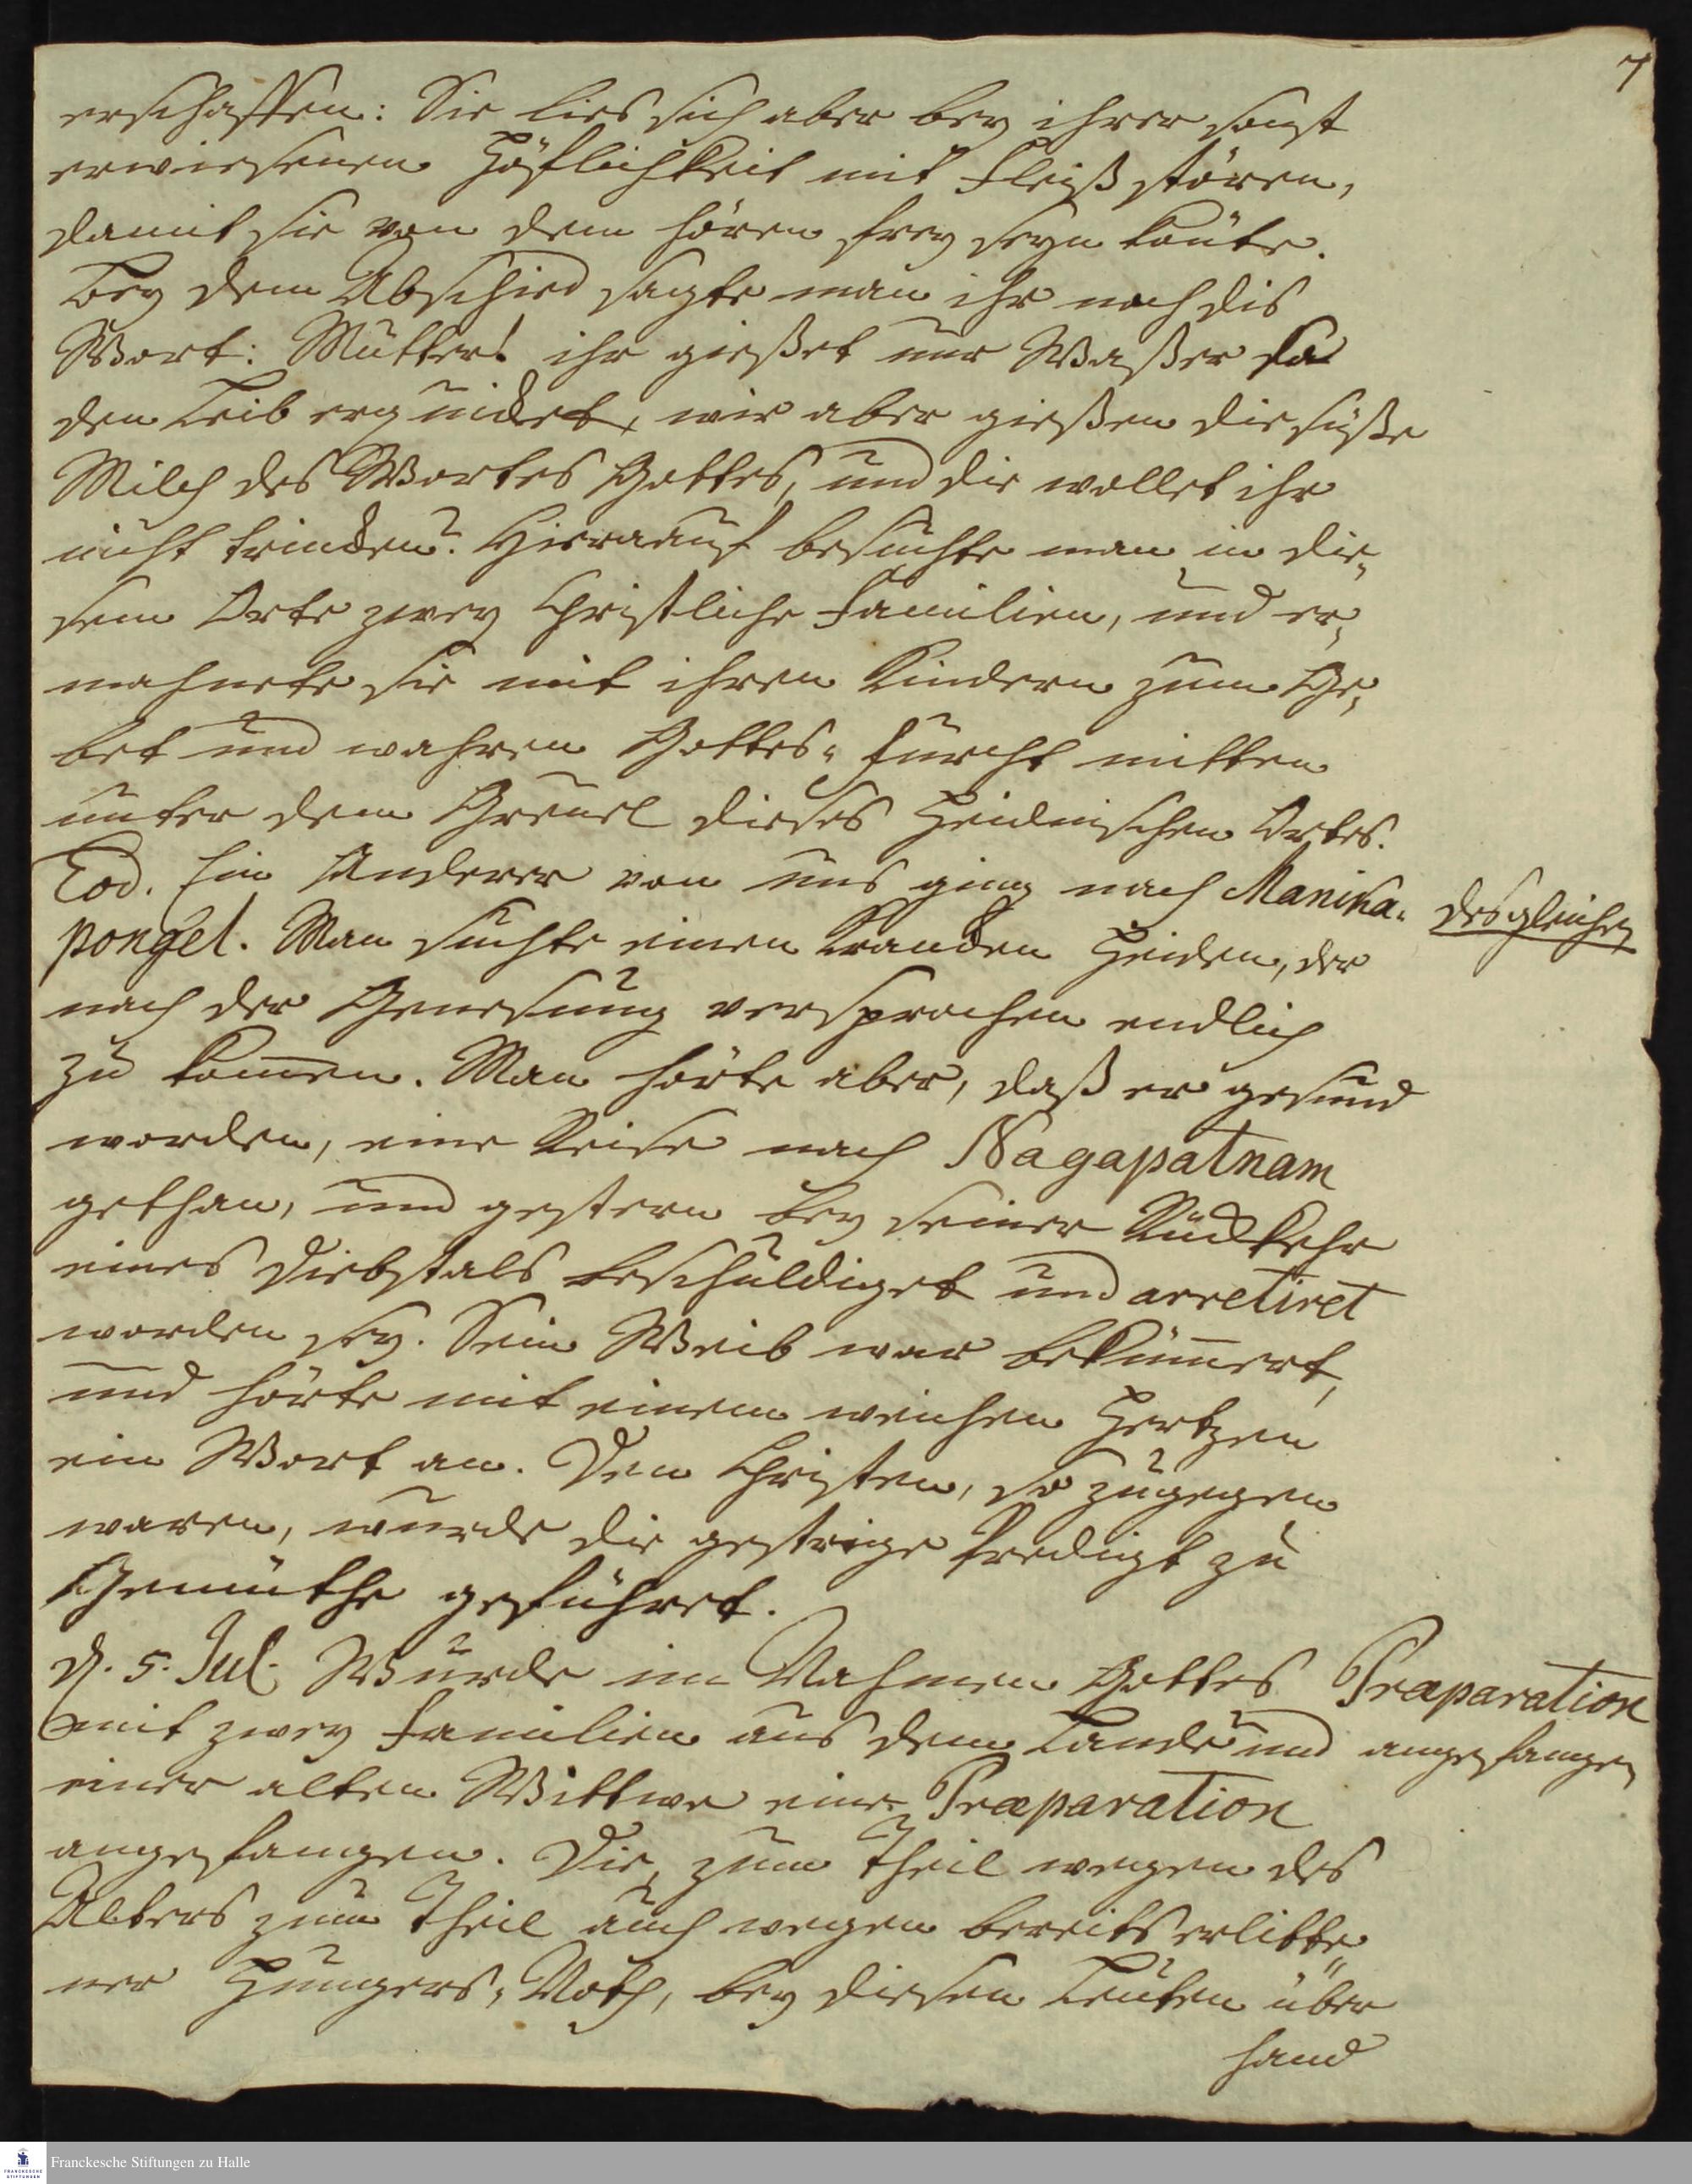 7
erschaffen: Sie lies sich aber bey ihrer sonst
erwiesenen Höflichkeit mit Fleiß stören,
damit sie von dem hören frey seyn könte.
Bey dem Abschied sagte man ihr noch dis
Wort: Mutter! ihr gießet nur Waßer so
den Leib erquicket, wir aber gießen die süße
Milch des Wortes Gottes, und die wollet ihr
nicht trincken? Hierauf besuchte man in die-
sem Orte zwey Christliche Familien, und er-
mahnete sie mit ihren Kindern zum Ge-
bet und wahren Gottes-furcht mitten
unter dem Greuel dieses Heidnischen Ortes.
Eod. Ein Anderer von uns ging nach Manika-
desgleichen
pongel. Man suchte einen krancken Heiden, der
nach der Genesung versprochen endlich
zu kom̄en. Man hörte aber, daß er gesund
worden, eine Reise nach Nagapatnam
gethan, und gestern bey seiner Rückkehr
eines Diebstals beschuldiget und arretiret
worden sey. Sein Weib war beküm̄ert,
und hörte mit einem weichen Hertzen
ein Wort an. Den Christen, so zugegen
waren, wurde die gestrige Predigt zu
Gemüthe geführet.
d. 5. Jul. Wurde im Nahmen Gottes
Præparation
mit zwey Familien aus dem Lande und
angefangen
einer alten Wittwe eine Præparation
angefangen. Die, zum Theil wegen des
Alters zum Theil auch wegen bereits erlitte-
ner Hungers-Noth, bey diesen Leuten über
hand
Franckesche Stiftungen zu Halle
FRANCKESCHE
STIFTUNGEN